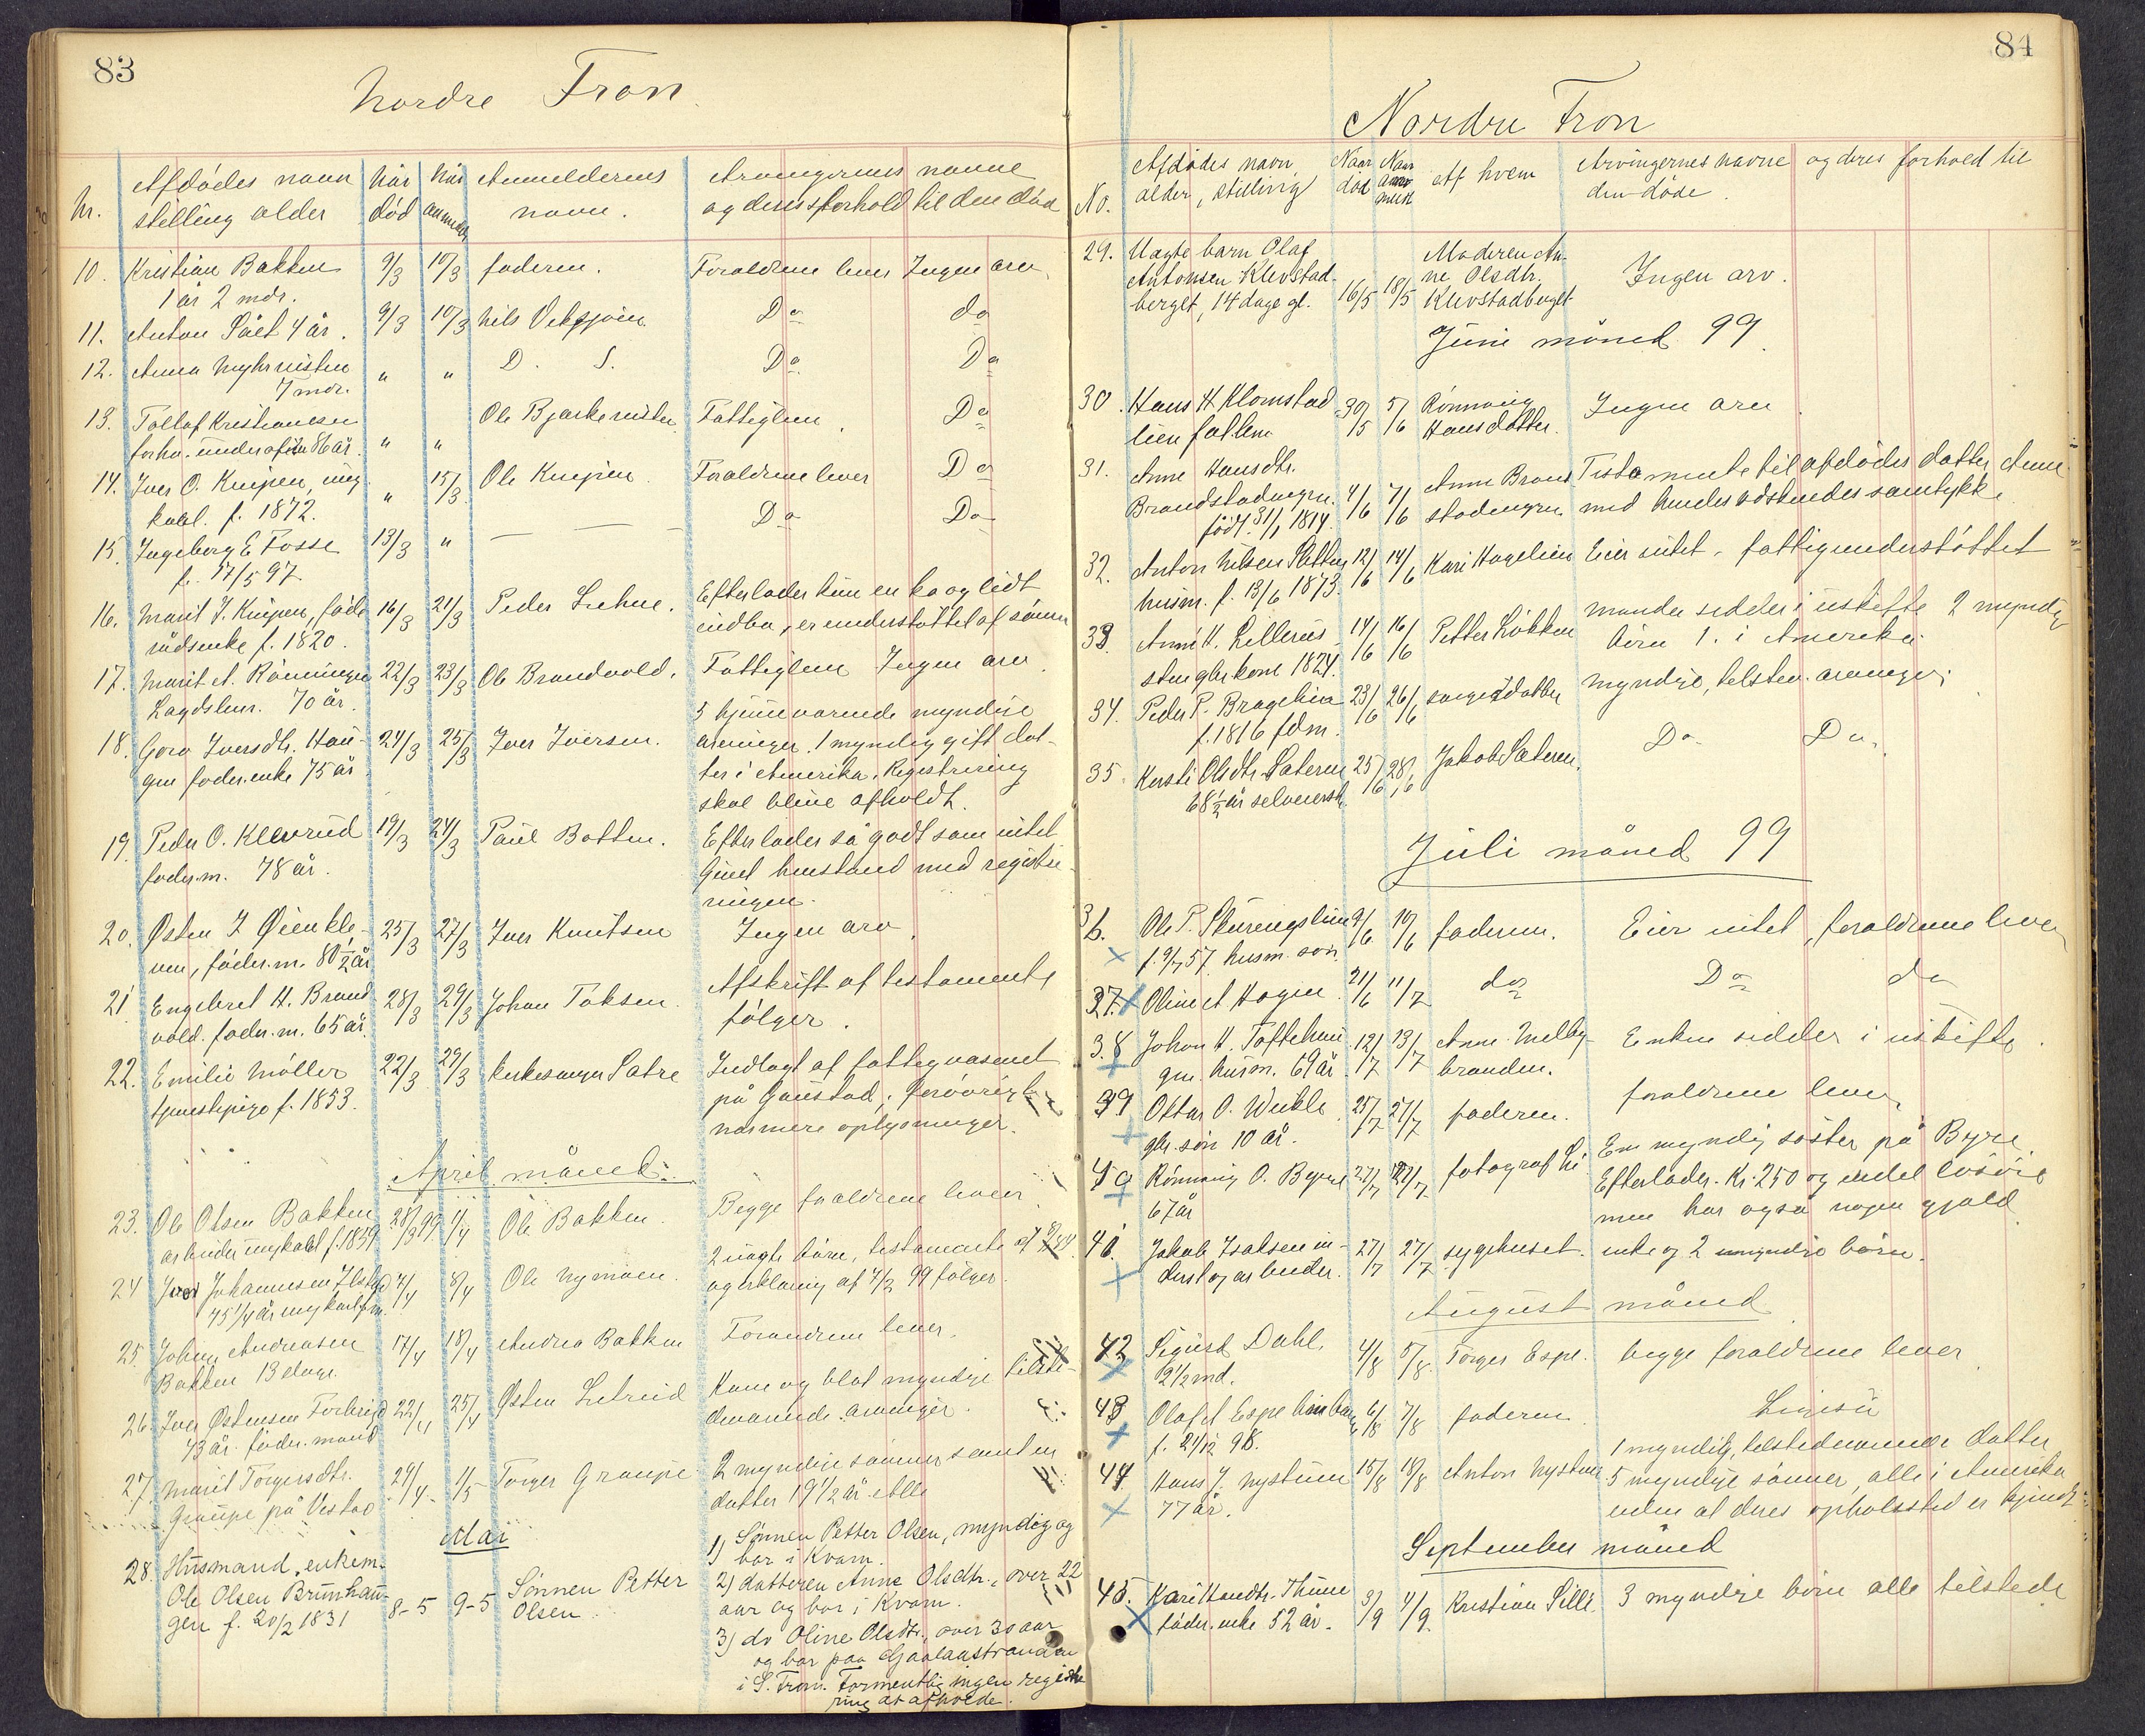 83
Nordre Fron
Nr.
Afdødes navn
stilling alder
når
død
når
anmeldt
Anmelderens
navn.
Arvingernes navne
og deres forhold til den død
10. Kristian Bakken 9/3 10/3 faderen. Forældrene lever Ingen arv.
1 år 2 mdr.
11. Anton Sået 4 år. 9/3 10/3 Nils Do do
12. Anna Myhrmisten " " D. S. Do Do
7 mdr.
13. Tollef Kristiansen Ole Fattiglem. Do
forhv. 86 år. " "
14. Iver O. Knipen, ung " 15/3 Ole Knipen. Forældrene lever Do
karl. f. 1872.
15. Ingeborg E Fosse 13/3 " — Do Do
f. 17/5 97
16. Marit I. Knipen, føde 16/3 21/3 Peder Luhne. Efterlader kun en ko og lidt
rådsenke f. 1820. indbo, er understøttet af sønn
17. Marit A. Rønningen 22/3 23/3 Ole Brandvold. Fattiglem Ingen arv.
Lægdslem. 70 år.
18. Goro Iversdtr. Hau- 24/3 25/3 Iver Iversen. 3 hjemmeværende myndige
gen føder.enke 75 år arvinger. 1 myndig gift dat-
ter i Amerika. Registrering
skal blive afholdt.
19. Peder O. Klevrud 19/3 24/3 Paul Botten. Efterlader så godt som intet
føder.m. 78 år. Givet henstand med registre-
ringen.
20. Østen I Øienkle- 25/3 27/3 Iver Knutsen Ingen arv.
ven, føder.m. 80 1/2 år
21 Engebret H. Brand 28/3 29/3 Johan Toksen. Afskrift af testamente
vold. føder.m. 65 år. følger.
22. Emilie Møller 22/3 29/3 kirkesanger Sætre Indlagt af fattigvæsenet
tjenestepige f. 1853. på Gaustad, forøvrigt
nærmere oplysninger.
April måned.
23. Ole Olsen Bakken 28/3 99 1/4 Ole Bakken. Begge forældrene lever
arbeider ungkarl f. 1859
24 Iver Johannesen 7/4 8/4 Ole Nymoen. 2 uægte børn, testamente af
75 1/4 år ungkarl og erklæring af 7/2 99 følger.
25. Johan Andreasen 17/4 18/4 Andrea Bakken Forældrene lever.
Bakken 13 dage.
26. Iver Østensen 22/4 25/4 Østen Kone og blot myndige tilste-
43 år. føder.mand deværende arvinger.
27. Marit Torgersdtr. 29/4 1/5 Torger Graupe 2 myndige sønner samt en
Graupe på Vestad datter 19 1/2 år Alle
Mai
28. Husmand, enkem. 8-5 9-5 Sønnen Petter 1) Sønnen Petter Olsen, myndig og
Ole Olsen Brunhau- Olsen. bor i Kvam.
gen f. 20/2 1831 2) datteren Anne Olsdtr., over 22
aar og bor i Kvam.
3) do Oline Olsdtr., over 30 aar
og bor paa Gaalaastranden
i S. Fron. Formentlig ingen registre
ring at afholde.
84
Nordre Fron
No.
Afdødes navn
alder, stilling
Naar
død
Naar
anmeldt
Af hvem
Arvingernes navne og deres forhold til
den døde.
29. Uægte barn Olaf Moderen An-
Antonsen Klevstad- ne Olsdtr. Ingen arv.
berget, 14 dage gl. 16/5 18/5 Klevstadberget
Juni måned 99
30. Hans H Klomstad 30/5 5/6 Rønnaug Ingen arv.
lien Hansdatter.
31. Anne Hansdtr. Anne Brand Testamente til afdødes datter Anne
Brandstadengen. 4/6 7/6 stadengen med hendes søskendes samtykke
født 31/1 1814.
32. Anton Nilsen 12/6 14/6 Kari Hagelien Eier intet. fattigunderstøttet
husm. f. 13/6 1873.
33. Anne H. Lillerus 14/6 16/6 Petter Løkken manden sidder i uskifte 2 myndig
kone 1824. børn 1. i Amerika
34. Peder P. Bragelien 23/6 26/6 myndige, tilsted. arvinger.
f. 1816 fdm.
35. Kersti Olsdtr. Sæteren 25/6 28/6 Jakob Sæteren. Do Do
68 1/2 år selveiersk.
Juli måned 99
36. Ole P. 9/6 10/6 faderen. Eier intet, forældrene lever
f. 9/7 57. husm. søn.
37. Oline A Hagen 21/6 11/7 do Do do
38 Johan H. Toftehau 12/7 13/7 Anne Melby- Enken sidder i uskifte.
gen husm. 69 år. branden.
39 Ottar O. Wikle 25/7 27/7 faderen. forældrene lever
gbr. søn 10 år.
40 Rønnaug O. Byre 27/7 27/7 fotograf Li En myndig søster på Byre
67 år Efterlader. Kr. 250 og endel løsøre
men har også nogen gjæld
41. Jakob Isaksen in- 27/7 27/7 sygehuset. enke og 2 umyndige børn.
derst og arbeider.
August måned
42 Sigurd Dahl. 4/8 5/8 Torger Espe. begge forældrene lever
2 1/2 md.
43 Olaf A Espe 6/8 7/8 faderen.
f. 24/12 98.
44 Hans J. Nystuen 15/8 18/8 Anton Nystuen 1 myndig, tilstedeværende datter
77 år. 5 myndige sønner, alle i Amerika
uden at deres opholdssted er kjendt
September måned
45. Kari Hansdtr. Thune 3/9 4/9 Kristian Lilli. 3 myndige børn alle tilstede
føder.enke 52 år.